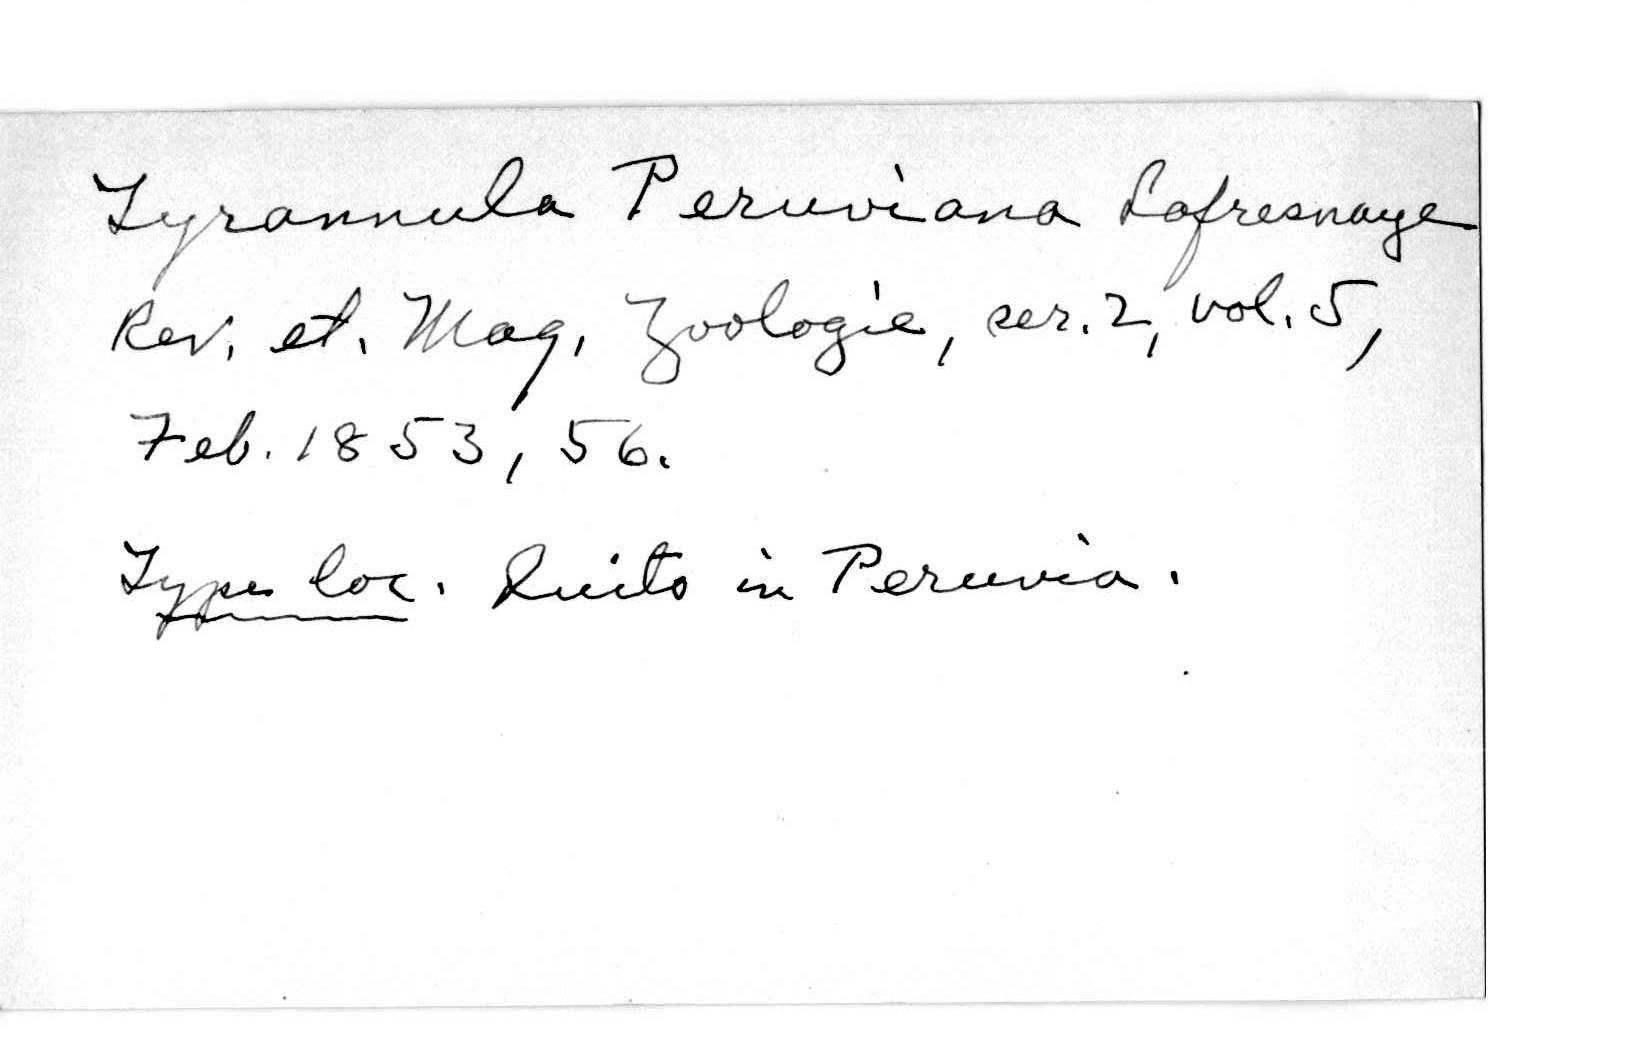 Tyrannula Peruviana Lafresnaye
Rev. et. Mag. Zoologie, ser. 2, vol. 5,
Feb. 1853, 56.
Type loc. Quito in Peruvia.